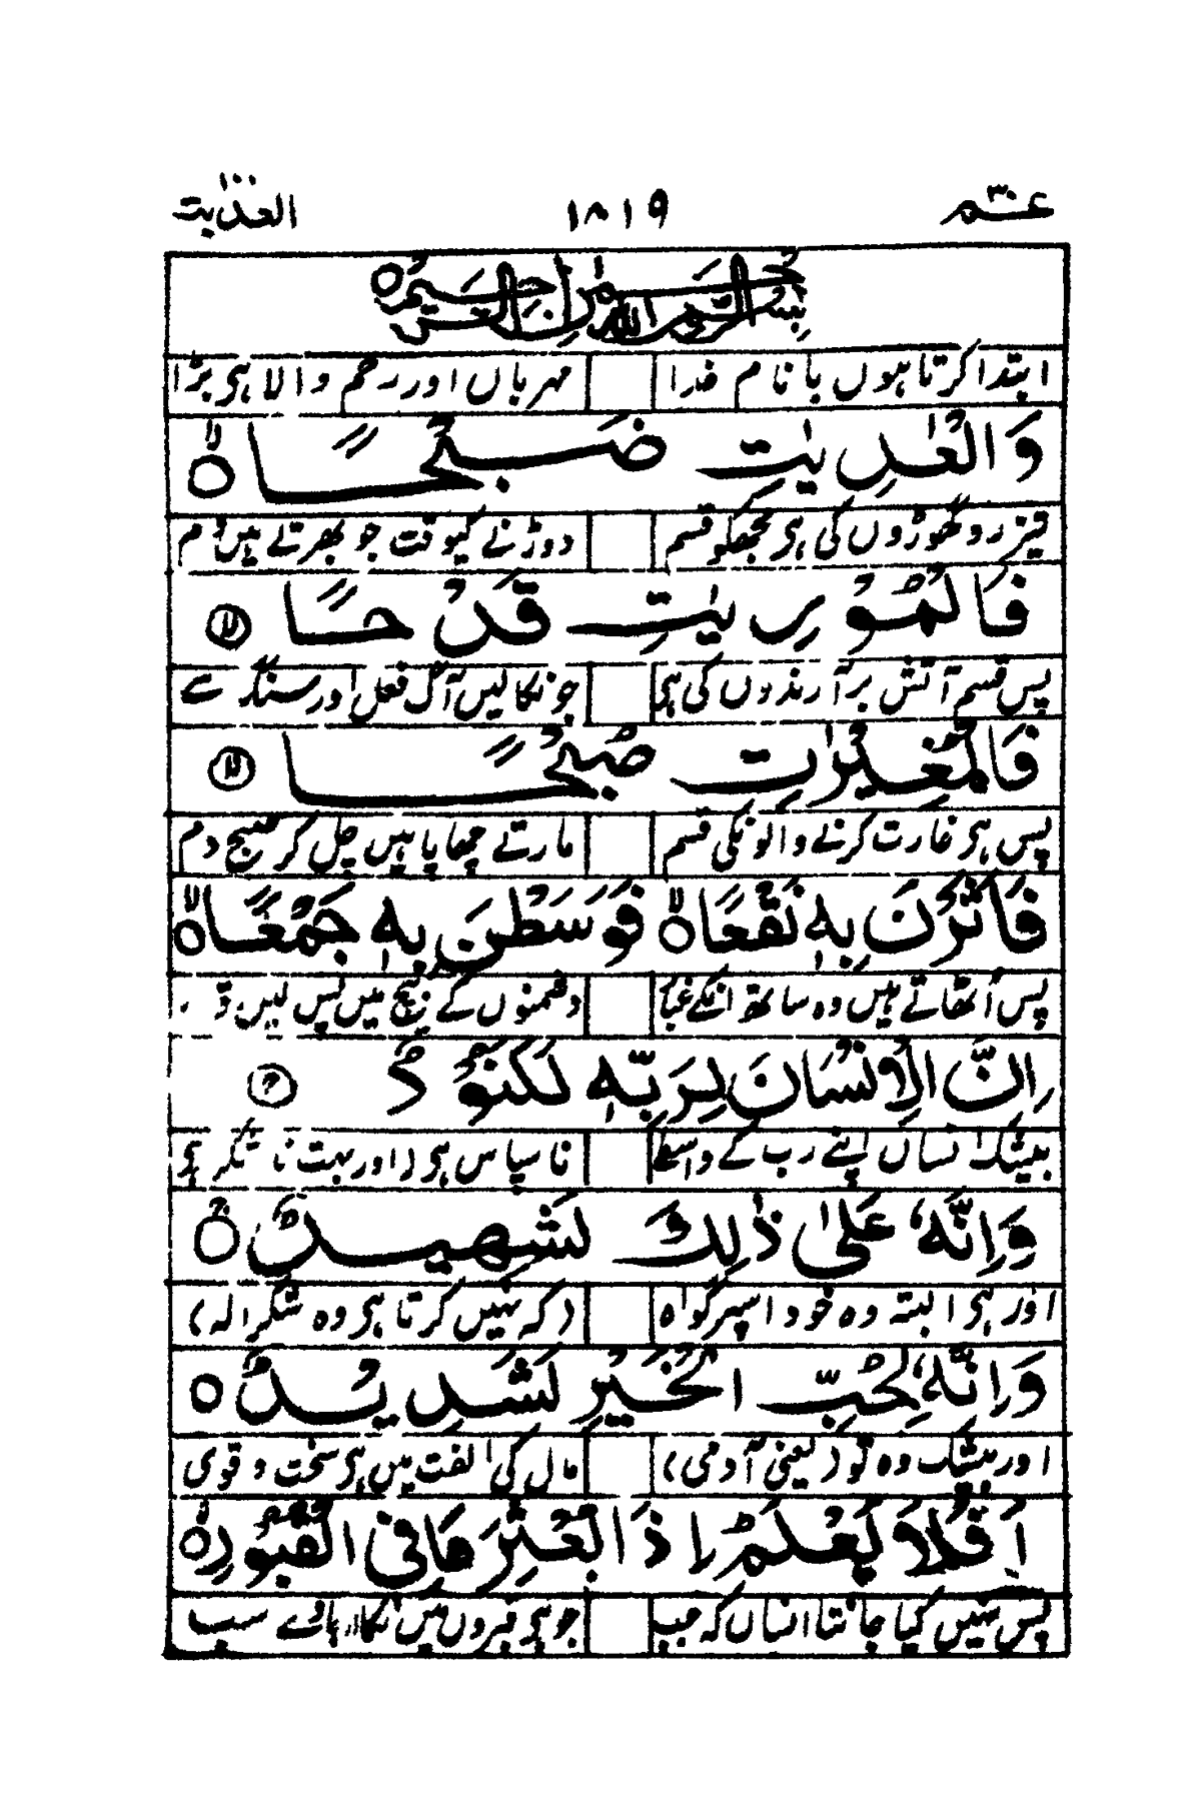 عـم ۳۰ ۱۸۱۹ العدیٰت ۱۰۰
بِسْمِ اللهِ الرَّحْمٰنِ الرَّحِيْمِ
ابتدا کرتا ہوں با نام خدا مہرباں اور رحم والا ہی بڑا
وَالْعٰدِيٰتِ ضَبْحًا
تیز رو گھوڑوں کی ہی مجھکو قسم دوڑنے کیوقت جو بھرتے ہیں دم
فَالْمُوْرِيٰتِ قَدْحًا
پس قسم آتش برآرندوں کی ہی جو نکالیں آگ نعل اور سنگ سے
فَالْمُغِيْرٰتِ صُبْحًا
پس ہی غارت کرنے والونکی قسم مارتے چھاپا ہیں چل کر صبح دم
فَاَثَرْنَ بِهٖ نَقْعًا فَوَسَطْنَ بِهٖ جَمْعًا
پس اُٹھاتے ہیں وہ ساتھ انکے غبار دشمنوں کے بیچ میں پس لیں
اِنَّ الْاِنْسَانَ لِرَبِّهٖ لَكَنُوْدٌ
بیشک انساں اپنے رب کے واسطے ناسپاس ہی (اور بہت ناشکر ہی
وَاِنَّهٗ عَلٰى ذٰلِكَ لَشَهِيْدٌ
اور ہی البتہ وہ خود اسپر گواہ (کہ نہیں کرتا ہی وہ شکر الہ)
وَاِنَّهٗ لِحُبِّ الْخَيْرِ لَشَدِيْدٌ
اور بیشک وہ تو (یعنی آدمی) مال کی الفت میں ہی سخت و قوی
اَفَلَا يَعْلَمُ اِذَا بُعْثِرَ مَا فِى الْقُبُوْرِ
پس نہیں کیا جانتا انساں کہ جب جو ہی قبروں میں نکالا جاوے سب